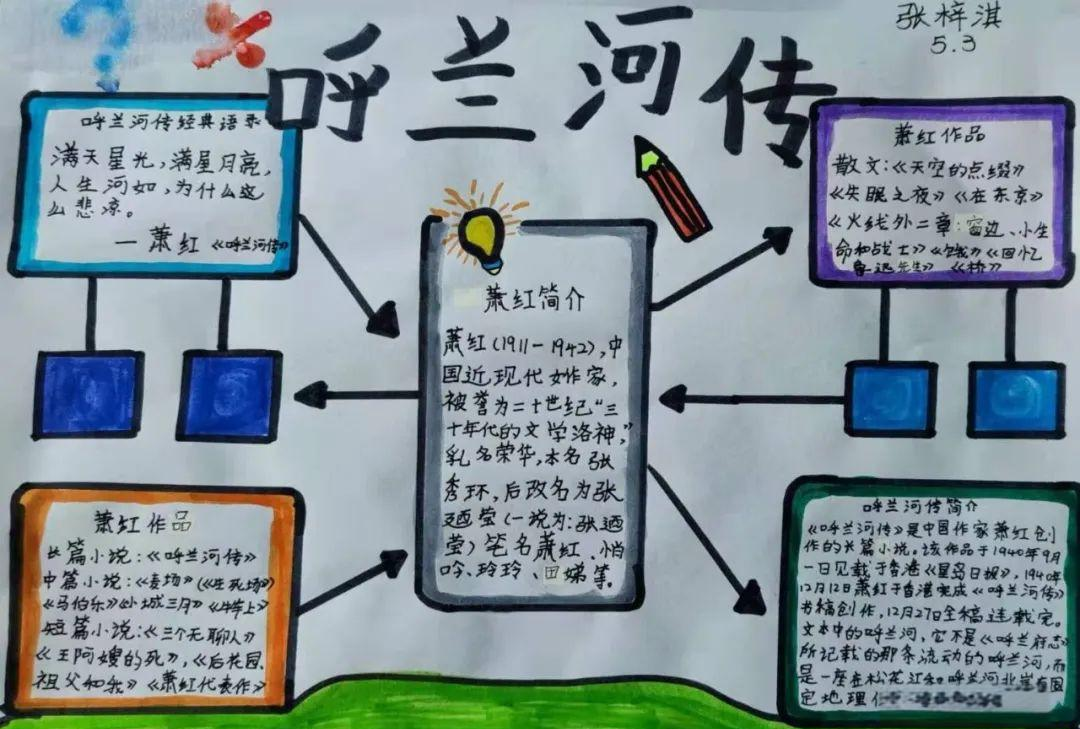 呼兰河传
张梓淇
5.3
呼兰河传经典语录
满天星光,满屋月亮,
人生何如,为什么这
么悲凉。
—萧红《呼兰河传》
萧红作品
散文:《天空的点缀》
《失眠之夜》《在东京》
《火线外二章:窗边、小生
命和战士》《饿》《回忆
鲁迅先生》《桥》
萧红简介
萧红(1911—1942),中
国近现代女作家,
被誉为二十世纪“三
十年代的文学洛神”,
乳名荣华,本名张
秀环,后改名为张
廼莹(一说为:张迺
莹)笔名萧红、悄
吟、玲玲、田娣等。
萧红作品
长篇小说:《呼兰河传》
中篇小说:《麦场》(《生死场》)
《马伯乐》《小城三月》《牛车上》
短篇小说:《三个无聊人》
《王阿嫂的死》,《后花园》
祖父和我》《萧红代表作》
呼兰河传简介
《呼兰河传》是中国作家萧红创
作的长篇小说。该作品于1940年9月
一日见载于香港《星岛日报》,1940年
12月12日萧红于香港完成《呼兰河传》
书稿创作,12月27日全稿连载完。
文本中的呼兰河,它不是《呼兰府志》
所记载的那条流动的呼兰河,而
是一座在松花江和呼兰河北岸有固
定地理位